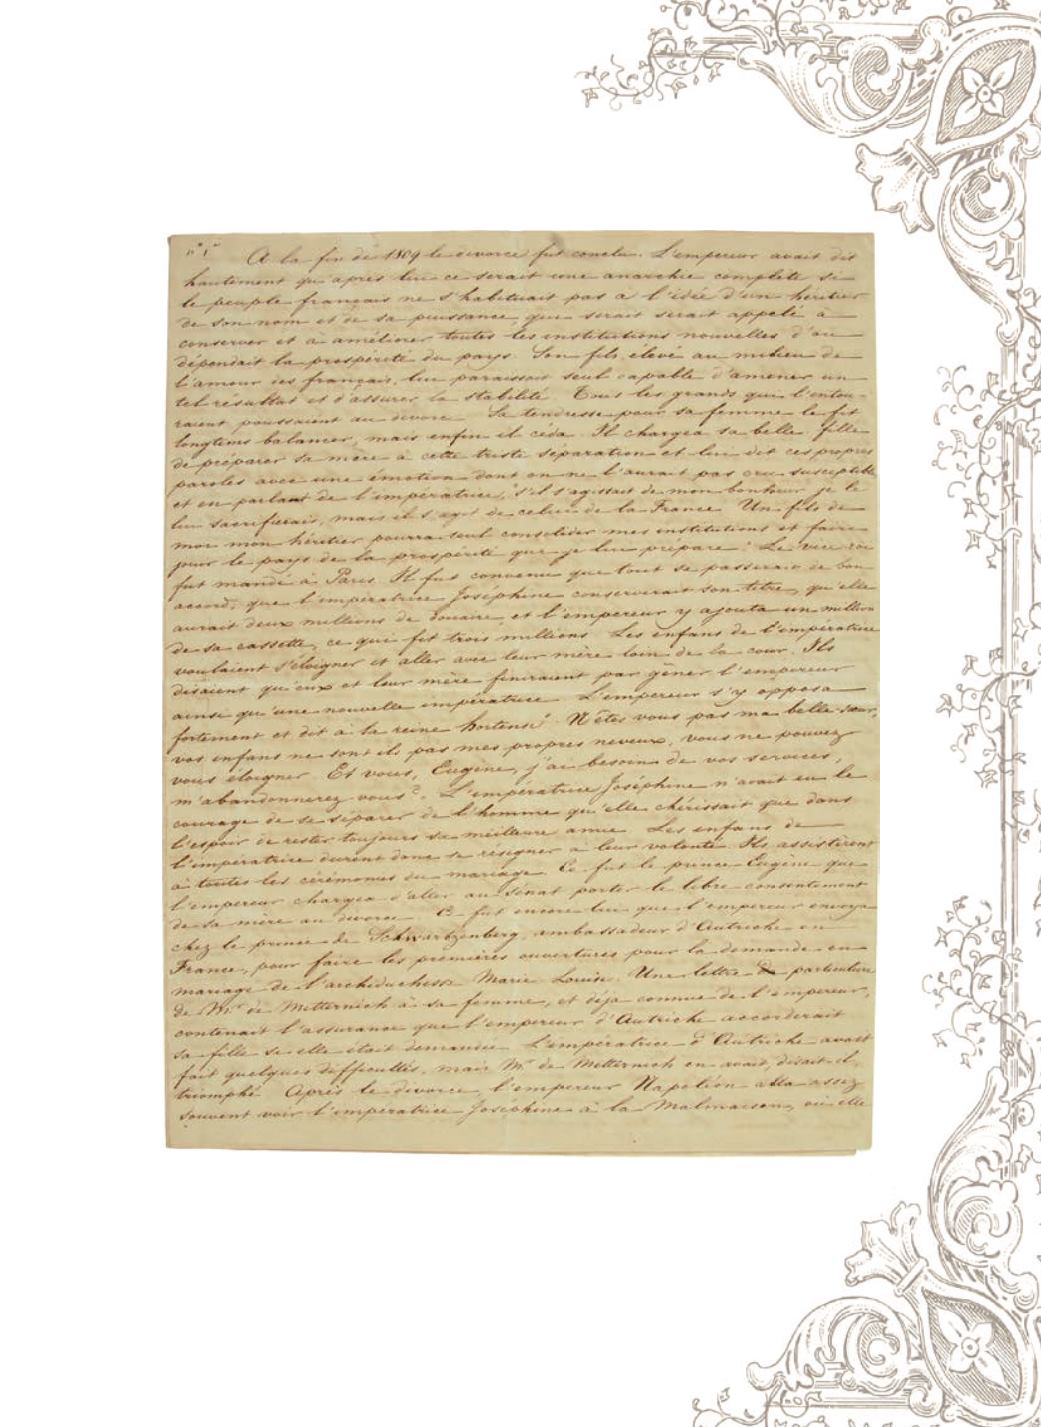 n° 1er
A la fin de 1809 le divorce fut conclu. L'empereur avait dit
hautement qu'après lui ce serait une anarchie complète si
le peuple français ne s'habituait pas à l'idée d'un héritier
de son nom et de sa puissance, qui serait serait appelé à
conserver et à améliorer toutes les institutions nouvelles d'où
dépendait la prospérité du pays. Son fils, élevé au milieu de
l'amour des français, lui paraissait seul capable d'amener un
tel résultat et d'assurer la stabilité. Tous les grands qui l'entou-
raient poussaient au divorce. Sa tendresse pour sa femme le fit
longtems balancer, mais enfin il céda. Il chargea sa belle-fille
de préparer sa mère à cette triste séparation et lui dit ces propres
paroles avec une émotion dont on ne l'aurait pas cru susceptible
et en parlant de l'impératrice, s'il s'agissait de mon bonheur je le
lui sacrifierais, mais il s'agit de celui de la France. Un fils de
moi mon héritier pourra seul consolider mes institutions et faire
jouir le pays de la prospérité que je lui prépare. Le vice-roi
fut mandé à Paris. Il fut convenu que tout se passerait de bon
accord, que l'impératrice Joséphine conserverait son titre, qu'elle
aurait deux millions de douaire, et l'empereur y ajouta un million
de sa cassette, ce qui fit trois millions. Les enfans de l'impératrice
voulaient s'éloigner et aller avec leur mère loin de la cour. Ils
disaient qu'eux et leur mère finiraient par gêner l'empereur
ainsi qu'une nouvelle impératrice. L'empereur s'y opposa
fortement et dit à la reine hortense: N'êtes vous pas ma belle-sœur,
vos enfans ne sont ils pas mes propres neveux, vous ne pouvez
vous éloigner. Et vous, Eugène, j'ai besoin de vos services,
m'abandonnerez vous? L'impératrice Joséphine n'avait eu le
courage de se séparer de l'homme qu'elle chérissait que dans
l'espoir de rester toujours sa meilleure amie. Les enfans de
l'impératrice durent donc se résigner à leur volonté. Ils assistèrent
à toutes les cérémonies du mariage. Ce fut le prince Eugène que
l'empereur chargea d'aller au Sénat porter le libre consentement
de sa mère au divorce. Ce fut encore lui que l'empereur envoya
chez le prince de Schwartzenberg, ambassadeur d'Autriche en
France, pour faire les premières ouvertures pour la demande en
mariage de l'archiduchesse Marie Louise. Une lettre particulière
de Mr de Metternich à sa femme, et déjà connue de l'empereur,
contenait l'assurance que l'empereur d'Autriche accorderait
sa fille si elle était demandée. L'impératrice d'Autriche avait
fait quelques difficultés, mais Mr de Metternich en avait, disait-il,
triomphé. Après le divorce, l'empereur Napoléon alla assez
souvent voir l'impératrice Joséphine à la Malmaison, où elle